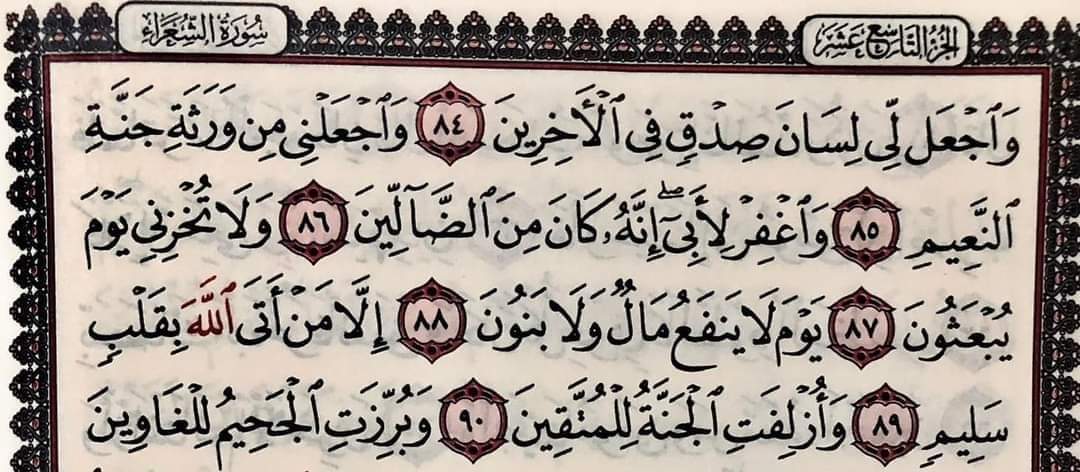 الجزء التاسع عشر
سورة الشعراء
وَٱجۡعَل لِّي لِسَانَ صِدۡقٖ فِي ٱلۡأٓخِرِينَ ٨٤ وَٱجۡعَلۡنِي مِن وَرَثَةِ جَنَّةِ
ٱلنَّعِيمِ ٨٥ وَٱغۡفِرۡ لِأَبِيٓ إِنَّهُۥ كَانَ مِنَ ٱلضَّآلِّينَ ٨٦ وَلَا تُخۡزِنِي يَوۡمَ
يُبۡعَثُونَ ٨٧ يَوۡمَ لَا يَنفَعُ مَالٞ وَلَا بَنُونَ ٨٨ إِلَّا مَنۡ أَتَى ٱللَّهَ بِقَلۡبٖ
سَلِيمٖ ٨٩ وَأُزۡلِفَتِ ٱلۡجَنَّةُ لِلۡمُتَّقِينَ ٩٠ وَبُرِّزَتِ ٱلۡجَحِيمُ لِلۡغَاوِينَ